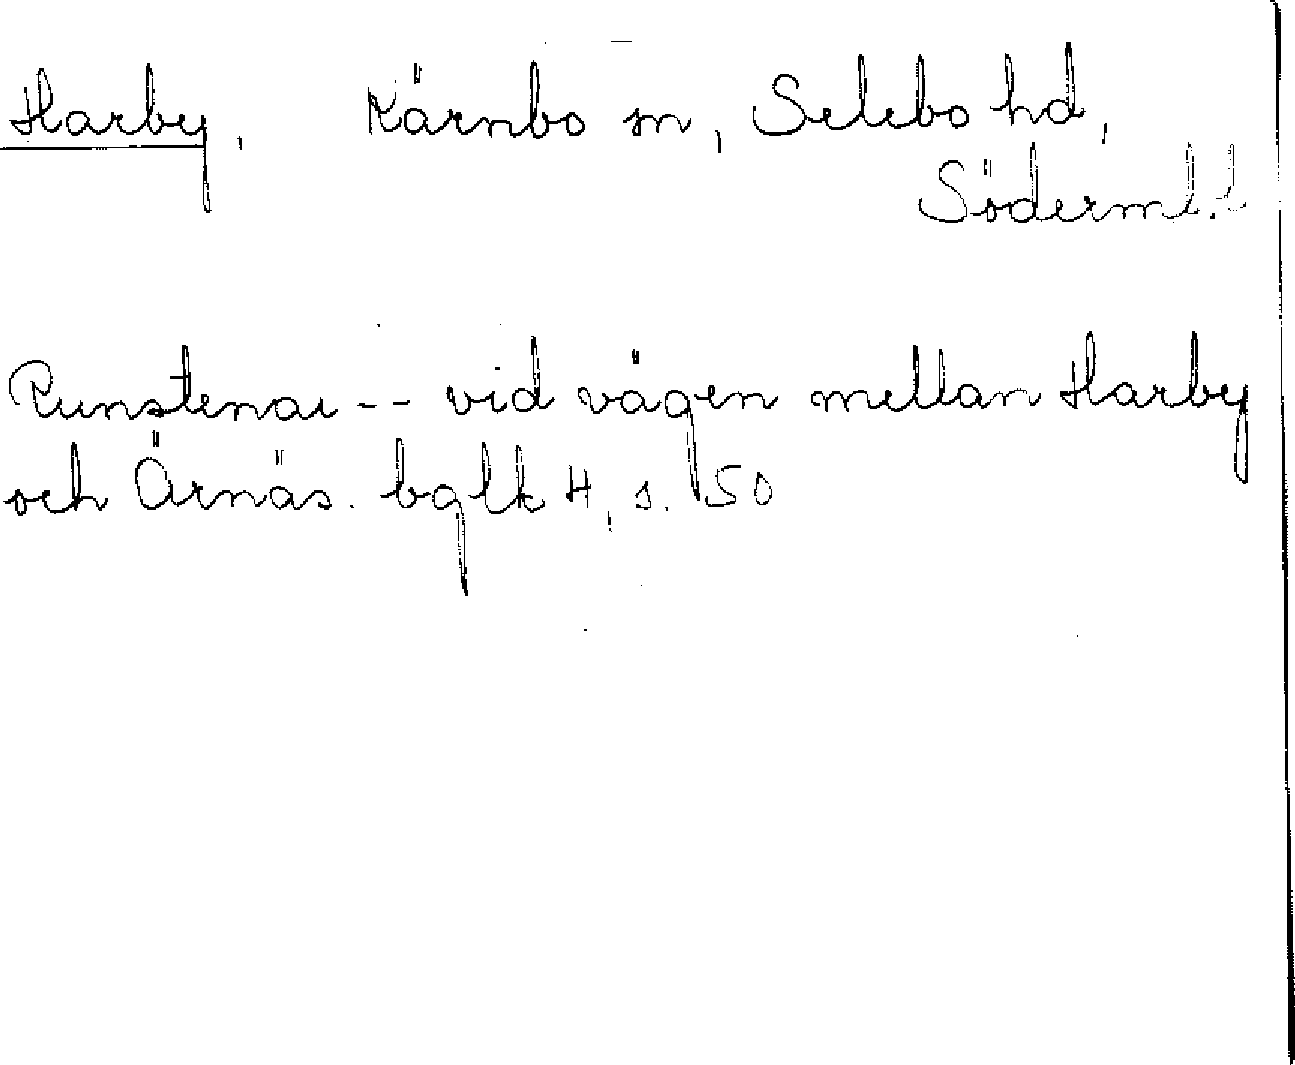 Harby, Kärnbo sn, Selebo hd,
Söderml. l
Runstenar -- vid vägen mellan Harby
och Ärnäs. bglk 4, s. 50